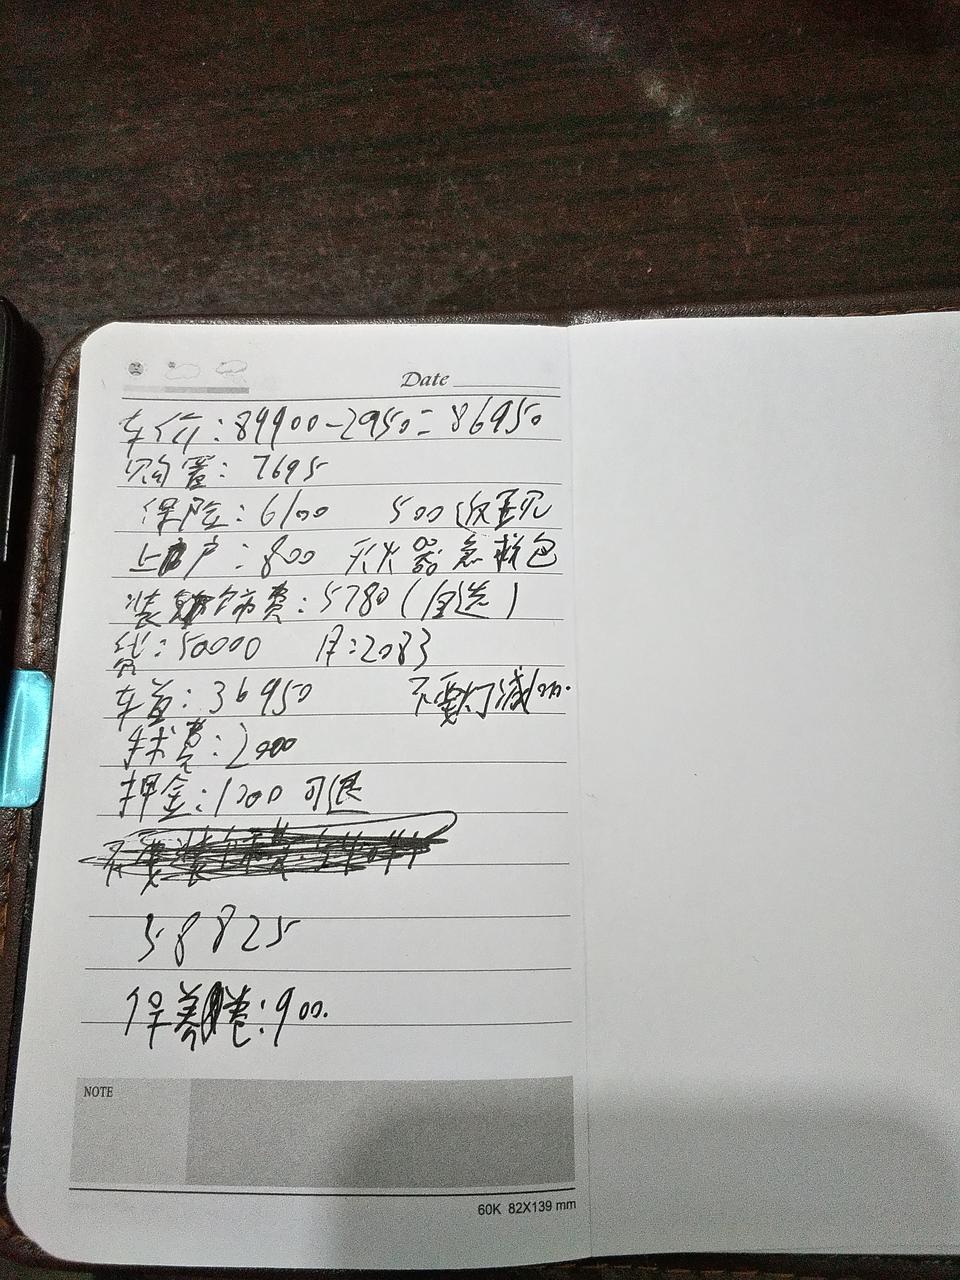 Date
车价:89900-2950=86950
购置:7695
保险:6100 500返现
上户:800 灭火器 急救包
装饰费:5780(自选)
贷:50000 月:2083
车首:36950 不要灯减
费:2000
押金:1200可退
58825
保养:900.
NOTE
60K 82X139 mm